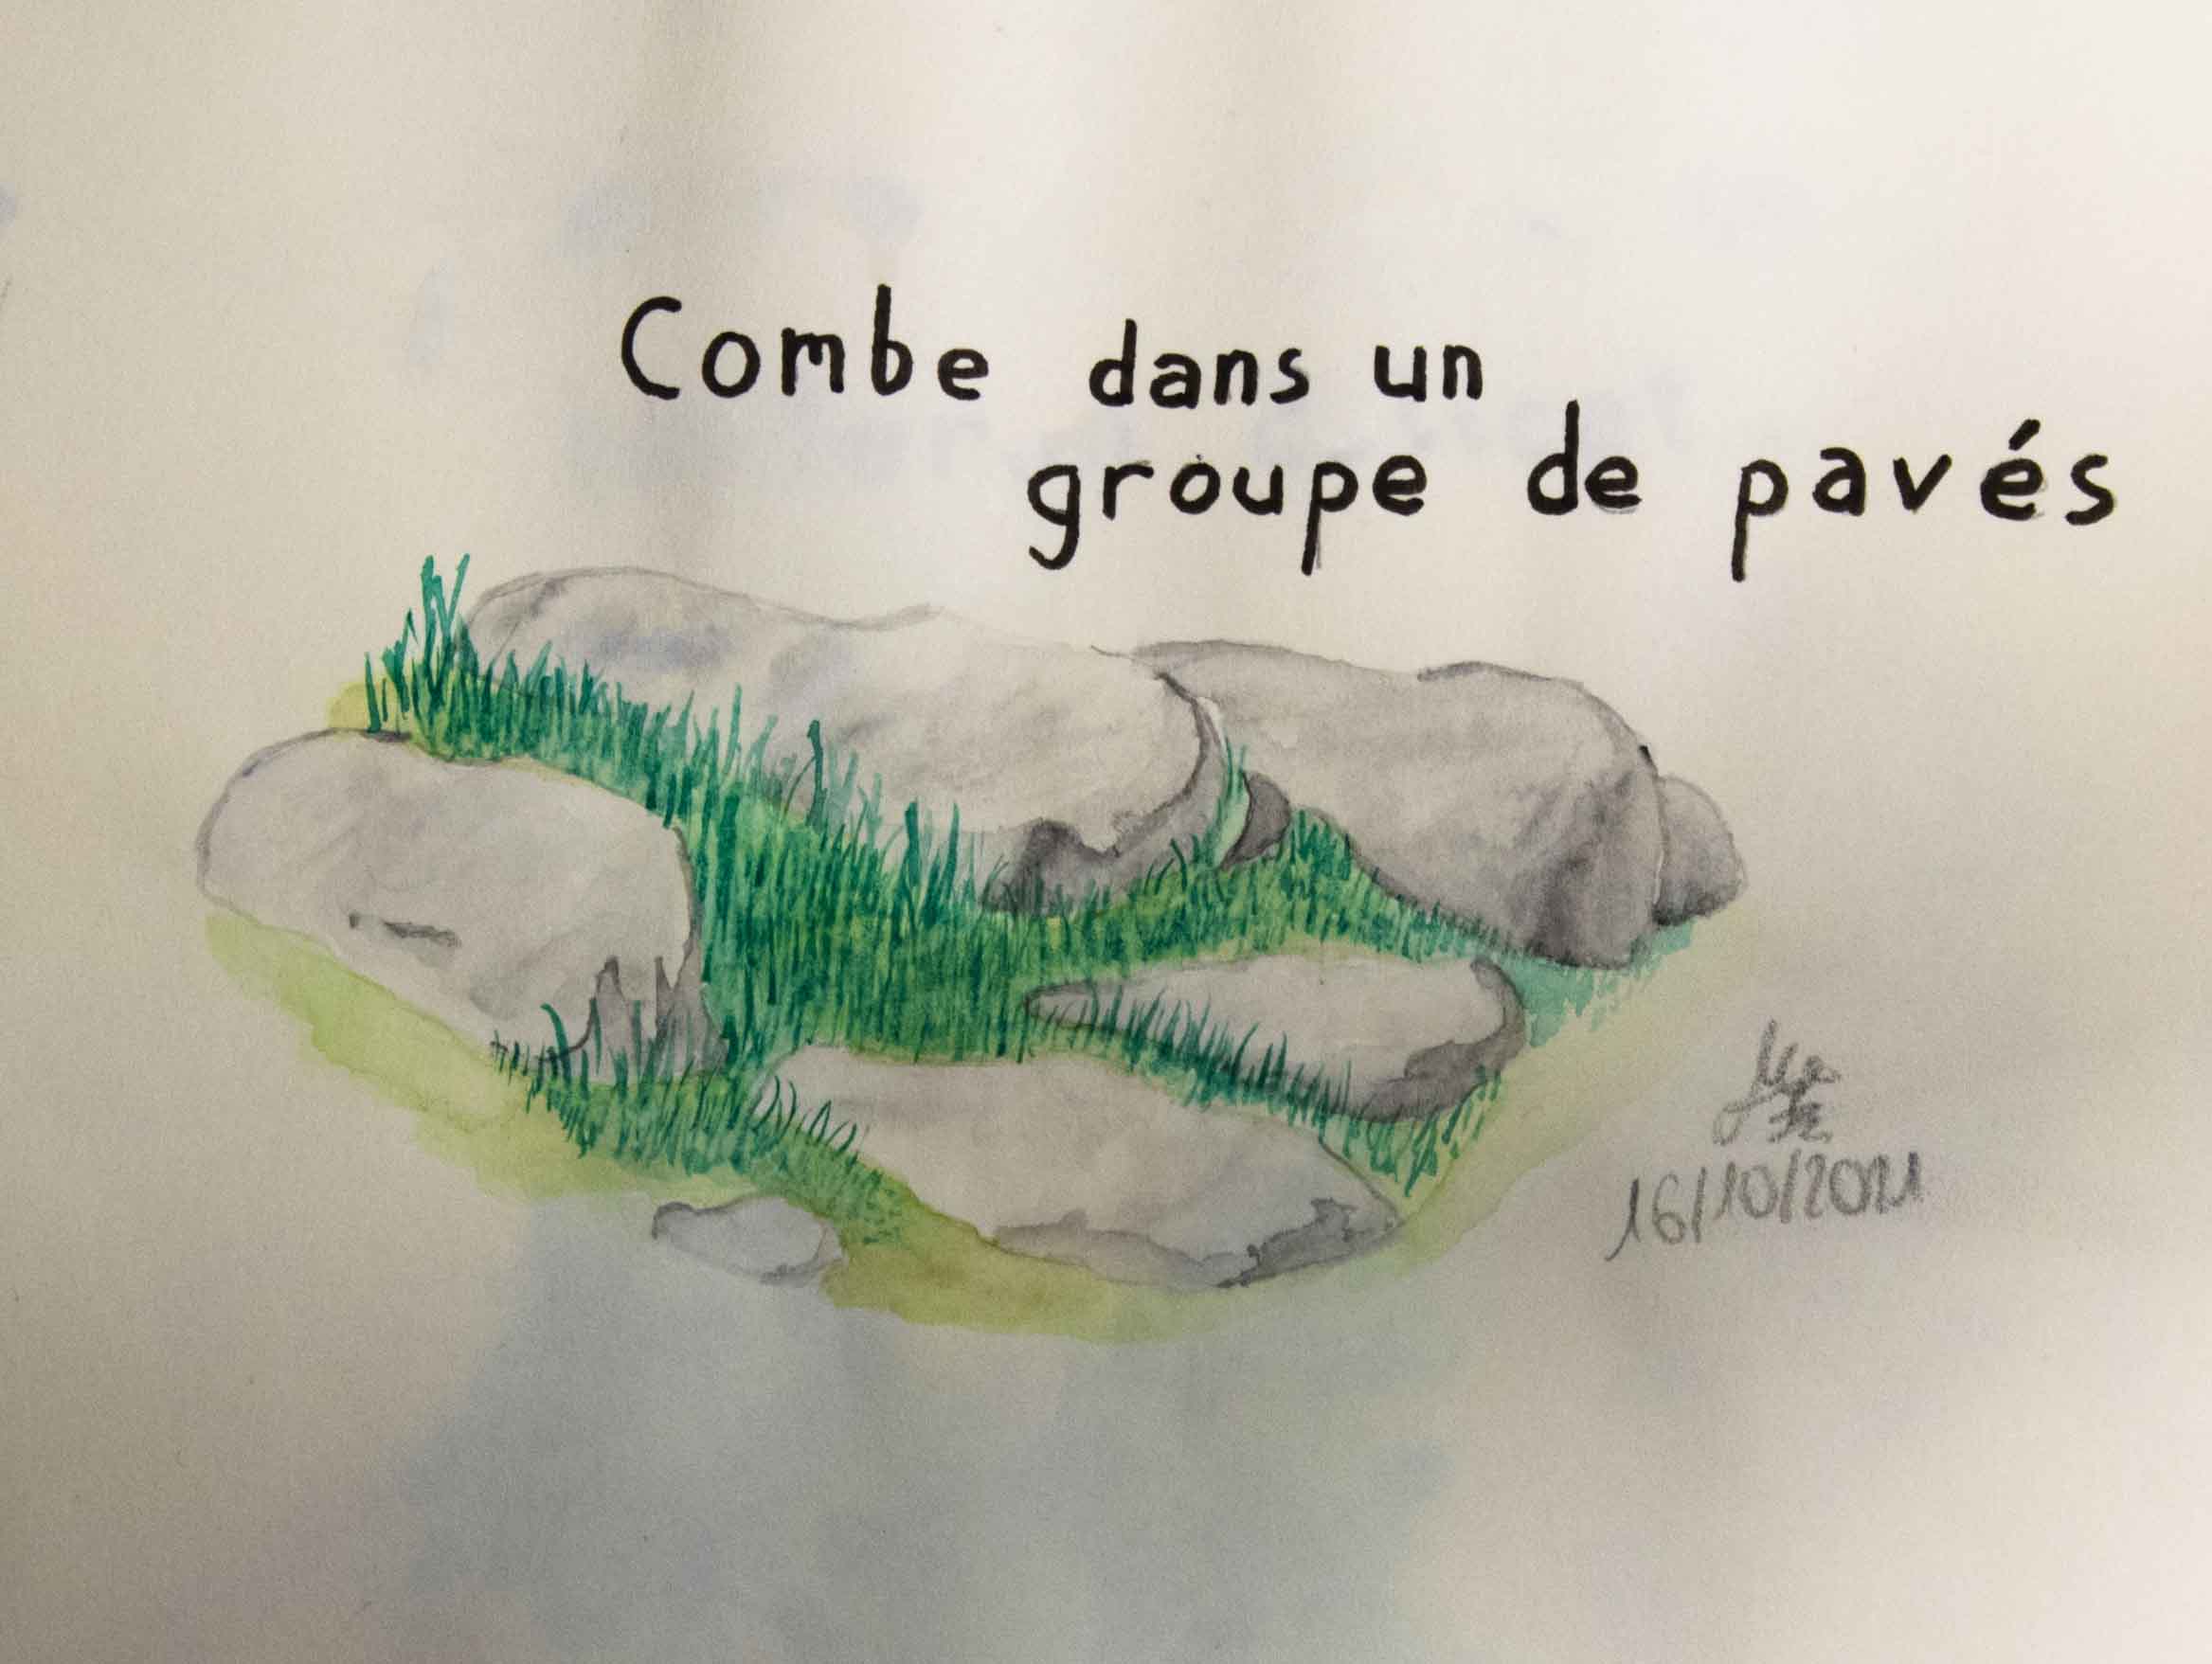 Combe dans un
groupe de pavés
16/10/2021